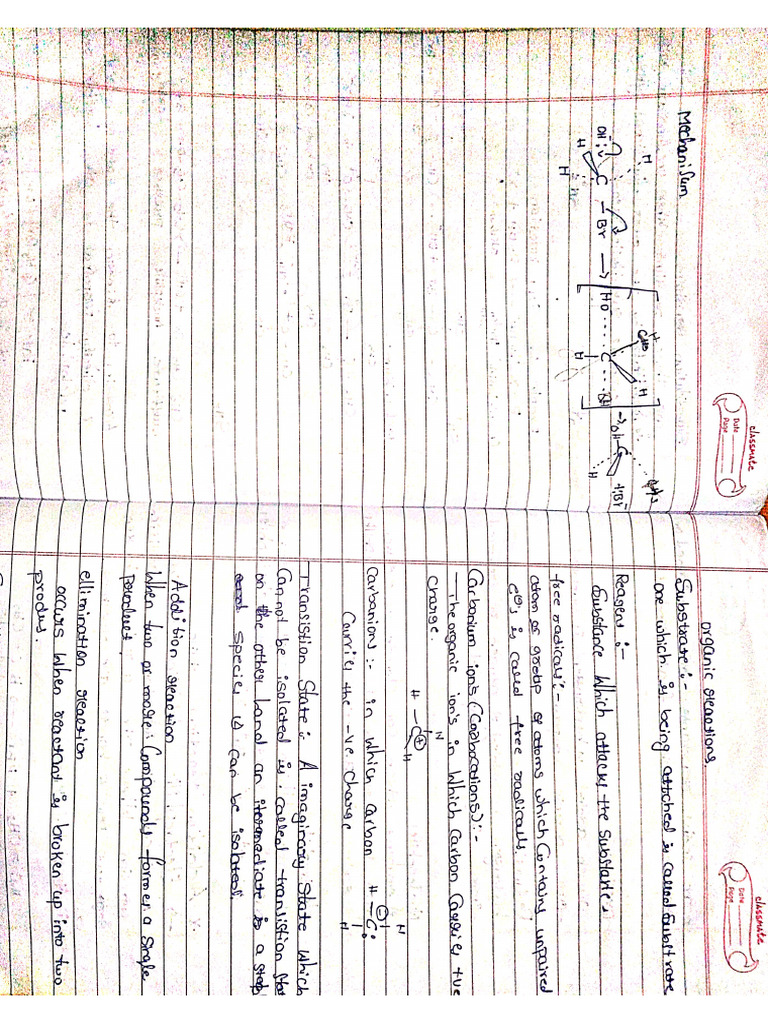 classmate
Date
Page
Mechanism
H
OH C – Br → HO ···· C ···· → OH C + Br
H
H
H
H
H
H
classmate
Date
Page
organic reactions.
Substrate :-
one which is being attached is called Substrate
Reagent :-
Substance which attacks the Substrates
free radicals :-
atom or group of atoms which contains unpaired
e⊖s is called free radicalls.
Carbonium ions (Carbocations) :-
– The organic ion's in which carbon carries +ve
charge.
H
H – C ⊕
H
Carbanions :- in which carbon H – C
Carries the -ve charge
H
H
Transistion State : A imaginary State which
Can not be isolated is called transistion
on the other hand an itermediate is a
species is can be isolated.
Addition reaction
When two or more Compounds former a single
product.
ellimination reaction
occurs when reactant is broken up into two
produs.